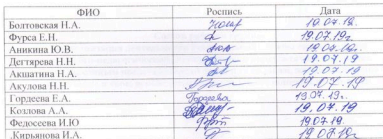 ФИО Роспись Дата
Болтовская Н.А. 19.07.19.
Фурса Е.Н. 19.07.19г.
Аникина Ю.В. 19.07.19г.
Дегтярева Н.Н. 19.07.19
Акшатина Н.А. 19.07.19
Акулова Н.Н. 19.07.19
Гордеева Е.А. Гордеева 19.07.19г.
Козлова А.А. 19.07.19
Федосеева И.Ю 19.07.19.
Кирьянова И.А. 19.07.19г.